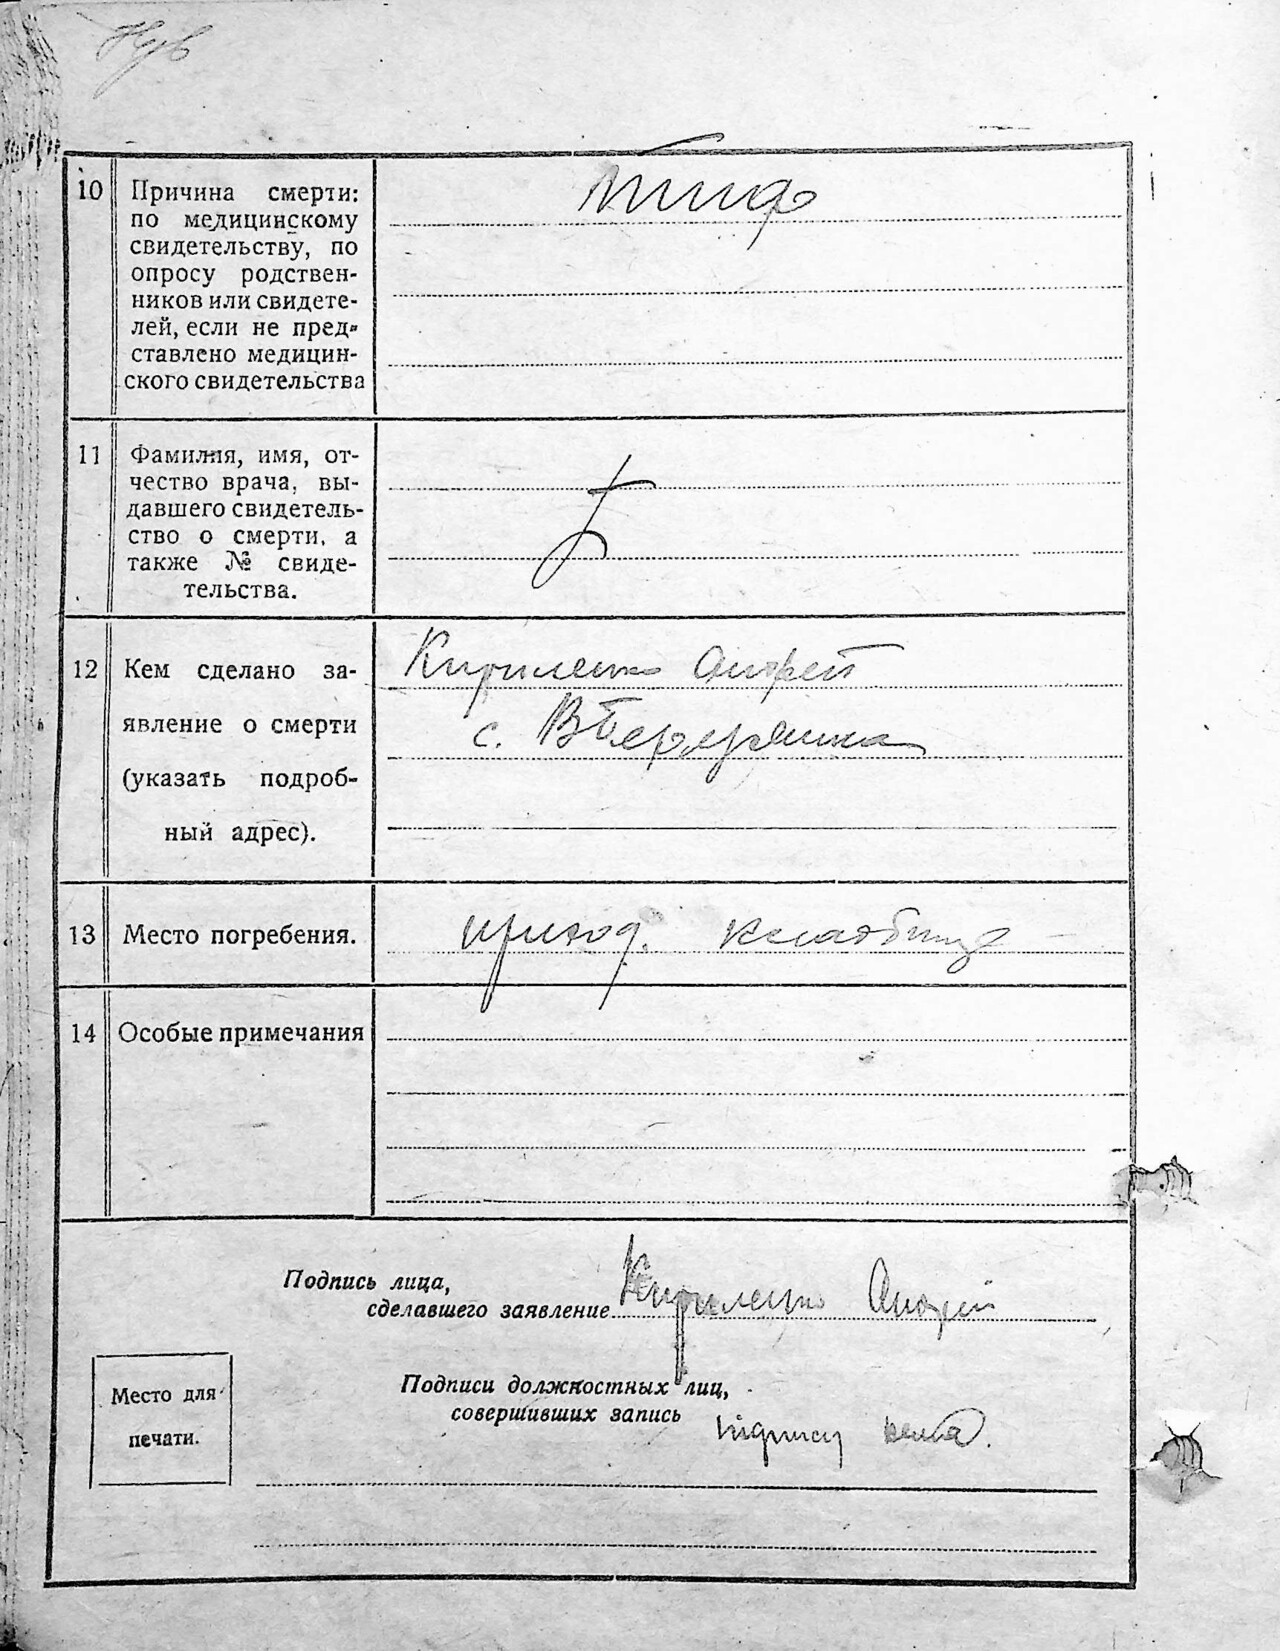 10 Причина смерти:
по медицинскому
свидетельству, по
опросу родствен-
ников или свидете-
лей, если не пред-
ставлено медицин-
ского свидетельства
тиф
11 Фамилия, имя, от-
чество врача, вы-
давшего свидетель-
ство о смерти, а
также № свиде-
тельства.
12 Кем сделано за-
явление о смерти
(указать подроб-
ный адрес).
Кириленко Андрей
с.
13 Место погребения.
приход. кладбище
14 Особые примечания
Подпись лица,
сделавшего заявление Кириленко Андрей
Подписи должностных лиц,
совершивших запись
підпису нема.
Место для
печати.